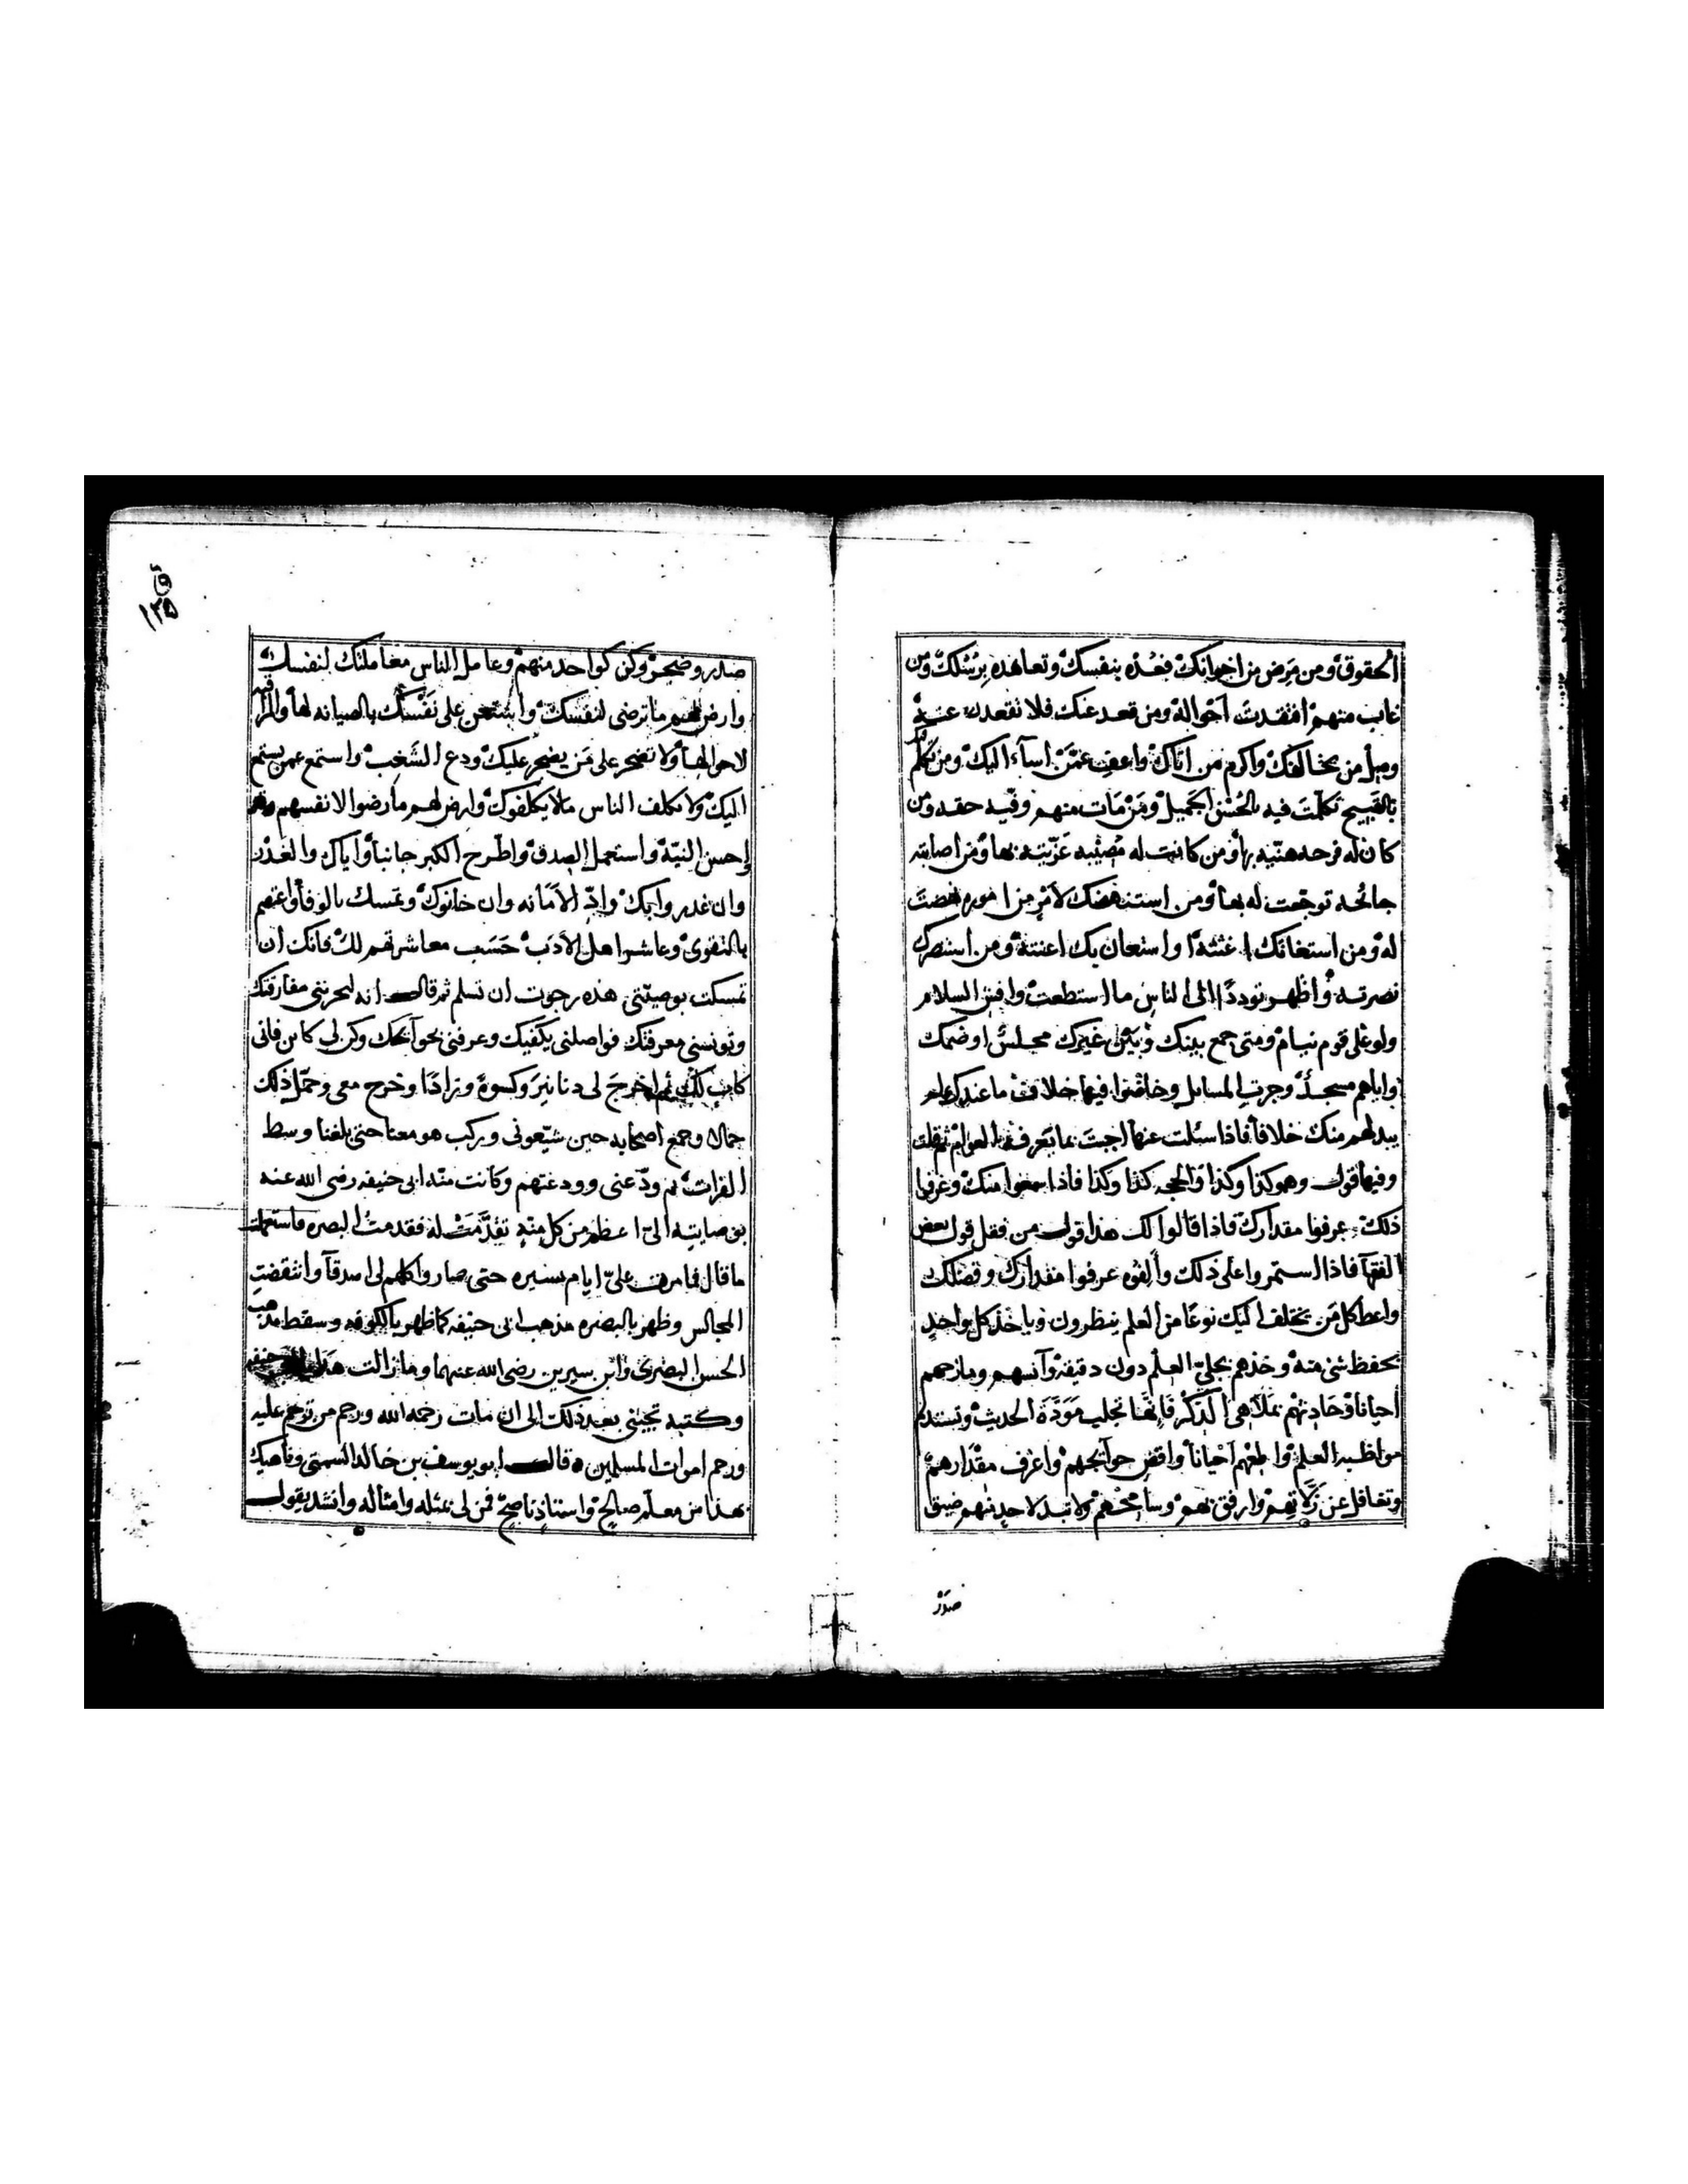 الحقوق ومن مرض من اخوانك فعده بنفسك وتعاهده برسلك ومن
غاب منهم افتقدت احواله ومن قعد عنك فلا تقعدن عنه
وصل من جفاك واكرم من اتاك واعف عمن اساء اليك ومن تكلم
بالقبيح تكلمت فيه بالحسن الجميل ومن مات منهم وفيه حقه ومن
كان له فرحه هنيه بها ومن كانت له مصيبه عزيته بها ومن اصابته
جائحه توجعت له بها ومن استنهضك لامر من اموره نهضت
له ومن استغاثك اغثته او استعان بك اعنته ومن استنصرك
نصرته واظهر توددا الى الناس ما استطعت وافش السلام
ولو على قوم نيام ومتى جمع بينك وبين غيرك مجلس او ضمك
واياهم مسجد وجرت المسايل وخاضوا فيها خلاف ما عندك لم
يبد لهم منك خلافا فاذا سئلت عنها اجبت بما يعرفه العوام ثم قلت
وفيها قول وهو كذا وكذا والحجه كذا وكذا فاذا سمعوا منك وعرفوا
ذلك عرفوا مقدارك فاذا قالوا لك هذا قول من فقل قول بعض
الفقهآ فاذا استمروا على ذلك وألفوه عرفوا مقدارك وفضلك
واعط كل من يختلف اليك نوعا من العلم ينظرون وياخذ كل واحد
بحفظ شى منه وخذهم بجلي العلم دون دقيقه وآنسهم ومازحهم
احيانا وحادثهم فانها تجلب مودة الحديث وتستديم
مواظبه العلم واطعهم احيانا واقض حوآئجهم واعرف مقدارهم
وتغافل عن زلاتهم وارفق بهم وسامحهم ولا تبد لاحد منهم ضيق
صدر
ق
١٣٥
صدر وضجر وكن كواحد منهم وعامل الناس معاملتك لنفسك
وارض لهم ما ترضى لنفسك واستعن على نفسك بالصيانه لها والمراقبه
لاحوالها ولا تضجر على من يضجر عليك ودع الشغب واستمع عمن يستمع
اليك ولا تكلف الناس ما لا يكلفوك وارض لهم ما رضوا لانفسهم
واحسن النية واستعمل الصدق واطرح الكبر جانبا واياك والغدر
وان غدروا بك وادّ الامانه وان خانوك وتمسك بالوفا واعتصم
بالتقوى وعاشر اهل الادب حسب معاشرتهم لك فانك ان
تمسكت بوصيتي هذه رجوت ان تسلم ثم قال انه ليحزنني مفارقتك
وتونسني معرفتك فواصلني بكتبك وعرفني بحوآئجك وكن لي كابن فاني
كاب لك ثم اخرج لي دنانير وكسوة وزادا وخرج معى وحمّل ذلك
حمالا وجمع اصحابه حين شيّعوني وركب هو معنا حتى بلغنا وسط
الفرات ثم ودّعني وودعتهم وكانت منّه ابي حنيفه رضى الله عنه
بوصايته اليّ اعظم من كل منّة تقدّمت له فقدمت البصره فاستعملت
ما قال فما مرت عليّ ايام يسيره حتى صاروا كلهم لي اصدقآ وانتقضت
المجالس وظهر بالبصره مذهب ابي حنيفه كما ظهر بالكوفه وسقط مذهب
الحسن البصرى وابن سيرين رضى الله عنهما وما زالت
وكتبه تجيئني بعد ذلك الى ان مات رحمه الله ورحم من ترحم عليه
ورحم اموات المسلمين قال ابو يوسف بن خالد السمتي وناهيك
بهذا من معلم صالح واستاذ ناصح فمن لي بمثله وامثاله وانشد يقول